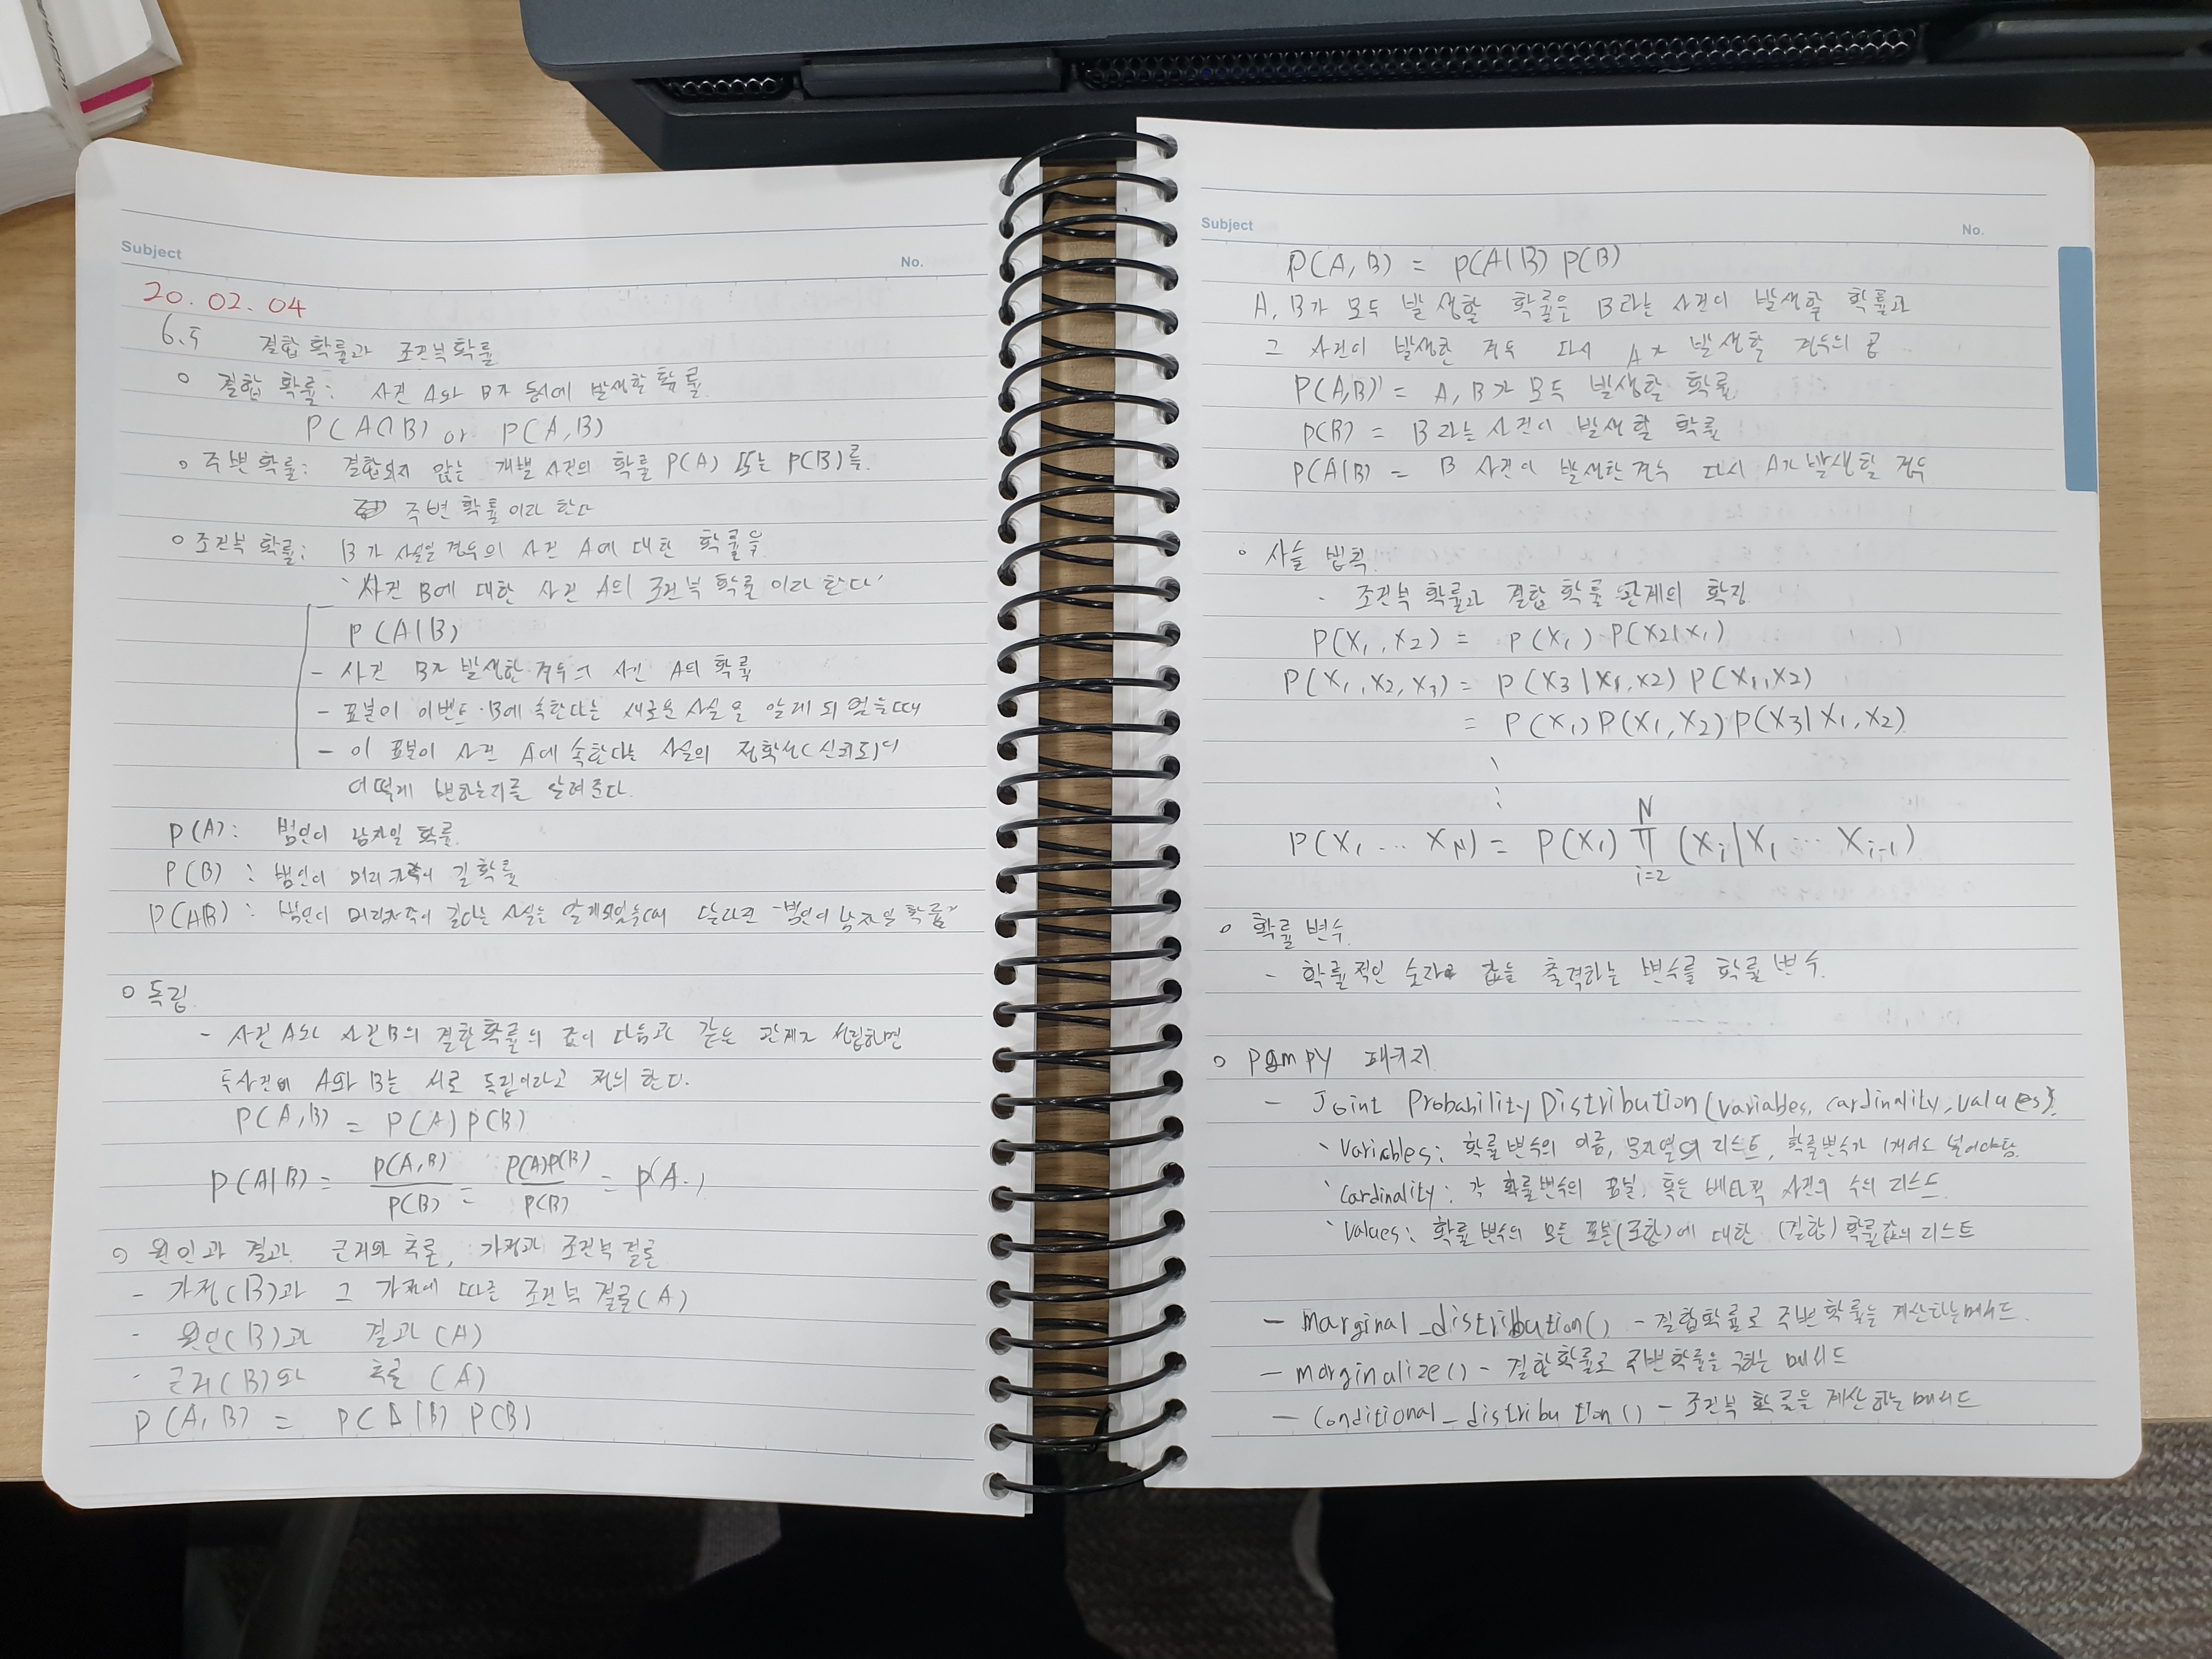 Subject
No.
20.02.04
6.5 결합 확률과 조건부 확률
○ 결합 확률: 사건 A와 B가 동시에 발생할 확률.
P(A∩B) or P(A,B)
○ 주변 확률: 결합되지 않는 개별 사건의 확률 P(A) 또는 P(B)를.
주변 확률이라 한다
○ 조건부 확률: B가 사실일 경우의 사건 A에 대한 확률을
'사건 B에 대한 사건 A의 조건부 확률이라 한다'
P(A|B)
- 사건 B가 발생한 경우의 사건 A의 확률
- 표본이 이벤트 B에 속한다는 새로운 사실을 알게 되었을때
- 이 표본이 사건 A에 속한다는 사실의 정확성(신뢰도)이
어떻게 변하는지를 알려준다.
P(A): 범인이 남자일 확률.
P(B): 범인이 머리카락이 길 확률
P(A|B): 범인이 머리카락이 길다는 사실을 알게되었을때 달라진 "범인이 남자일 확률"
○ 독립
- 사건 A와 사건B의 결합확률의 값이 다음과 같은 관계가 성립하면
두사건 A와 B는 서로 독립이라고 정의 한다.
P(A,B) = P(A)P(B)
P(A|B) = P(A,B)/P(B) = P(A)P(B)/P(B) = P(A)
○ 원인과 결과. 근거와 추론, 가정과 조건부 결론
- 가정(B)과 그 가정에 따른 조건부 결론(A)
- 원인(B)과 결과(A)
- 근거(B)와 추론(A)
P(A,B) = P(A|B) P(B)
Subject
No.
P(A,B) = P(A|B) P(B)
A, B가 모두 발생할 확률은 B라는 사건이 발생할 확률과
그 사건이 발생한 경우 다시 A가 발생할 경우의 곱
P(A,B) = A, B가 모두 발생할 확률
P(B) = B라는 사건이 발생할 확률
P(A|B) = B 사건이 발생한 경우 다시 A가 발생할 경우
○ 사슬 법칙
- 조건부 확률과 결합 확률 관계의 확장
P(X₁,X₂) = P(X₁) P(X₂|X₁)
P(X₁,X₂,X₃) = P(X₃|X₁,X₂) P(X₁,X₂)
= P(X₁)P(X₁,X₂)P(X₃|X₁,X₂)
⋮
P(X₁ ⋯ X_N) = P(X₁) ∏_{i=2}^{N} (X_i|X₁ ⋯ X_{i-1})
○ 확률 변수
- 확률적인 숫자 값을 출력하는 변수를 확률 변수.
○ pgmpy 패키지
- Joint Probability Distribution(variables, cardinality, values)
' Variables: 확률 변수의 이름, 문자열의 리스트, 확률변수가 1개여도 넣어야함.
' Cardinality: 각 확률변수의 표본, 혹은 배타적 사건의 수의 리스트.
' Values: 확률 변수의 모든 표본(조합)에 대한 (결합) 확률값의 리스트
- marginal_distribution() - 결합확률로 주변 확률을 계산하는 메서드.
- marginalize() - 결합확률로 주변확률을 구하는 메서드
- Conditional_distribution() - 조건부 확률을 계산하는 메서드